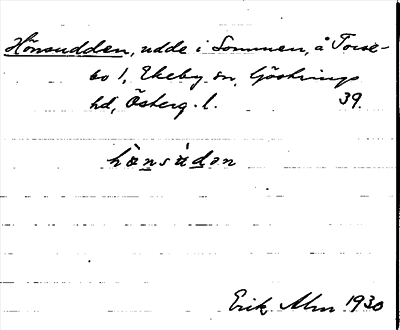 Hönsudden, udde i Sommen, å Torse-
bo 1, Ekeby sn, Göstrings
hd, Österg. l. 39.
hònsúdən
Erik Alm 1930